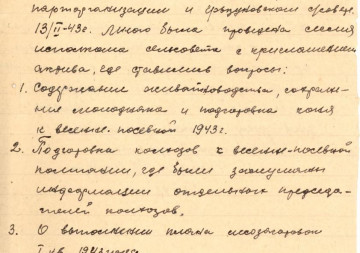 парторганизации и
13/II-43г. Лично была проведена сессия
исполкома сельсовета с приглашением
актива, где ставились вопросы:
1. Содержание животноводства, сохране-
ние молодняка и подготовка коня
к весенне-посевной 1943г.
2. Подготовка колхозов к весенне-посевной
кампании, где были заслушаны
информации отдельных председа-
телей колхозов.
3. О выполнении плана
I кв. 1943 года